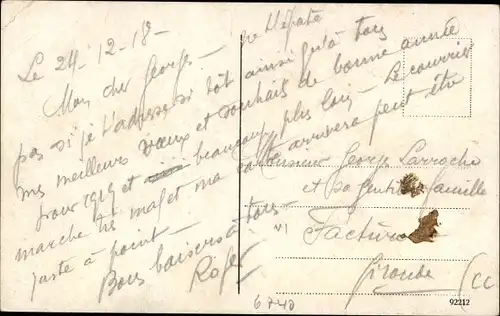 Le 24-12-18-
Mon cher Georges - ne t'épate
pas si je t'adresse si tôt ainsi qu'à tous
mes meilleurs vœux et souhaits de bonne année
pour 1919 et beaucoup plus loin - Le courrier
marche très mal et ma carte arrivera peut être
juste à point - à tous -
Bons baisers
Roger
Monsieur Georges Larroche
et sa gentille famille
VI
Facture
Gironde
6740
92212